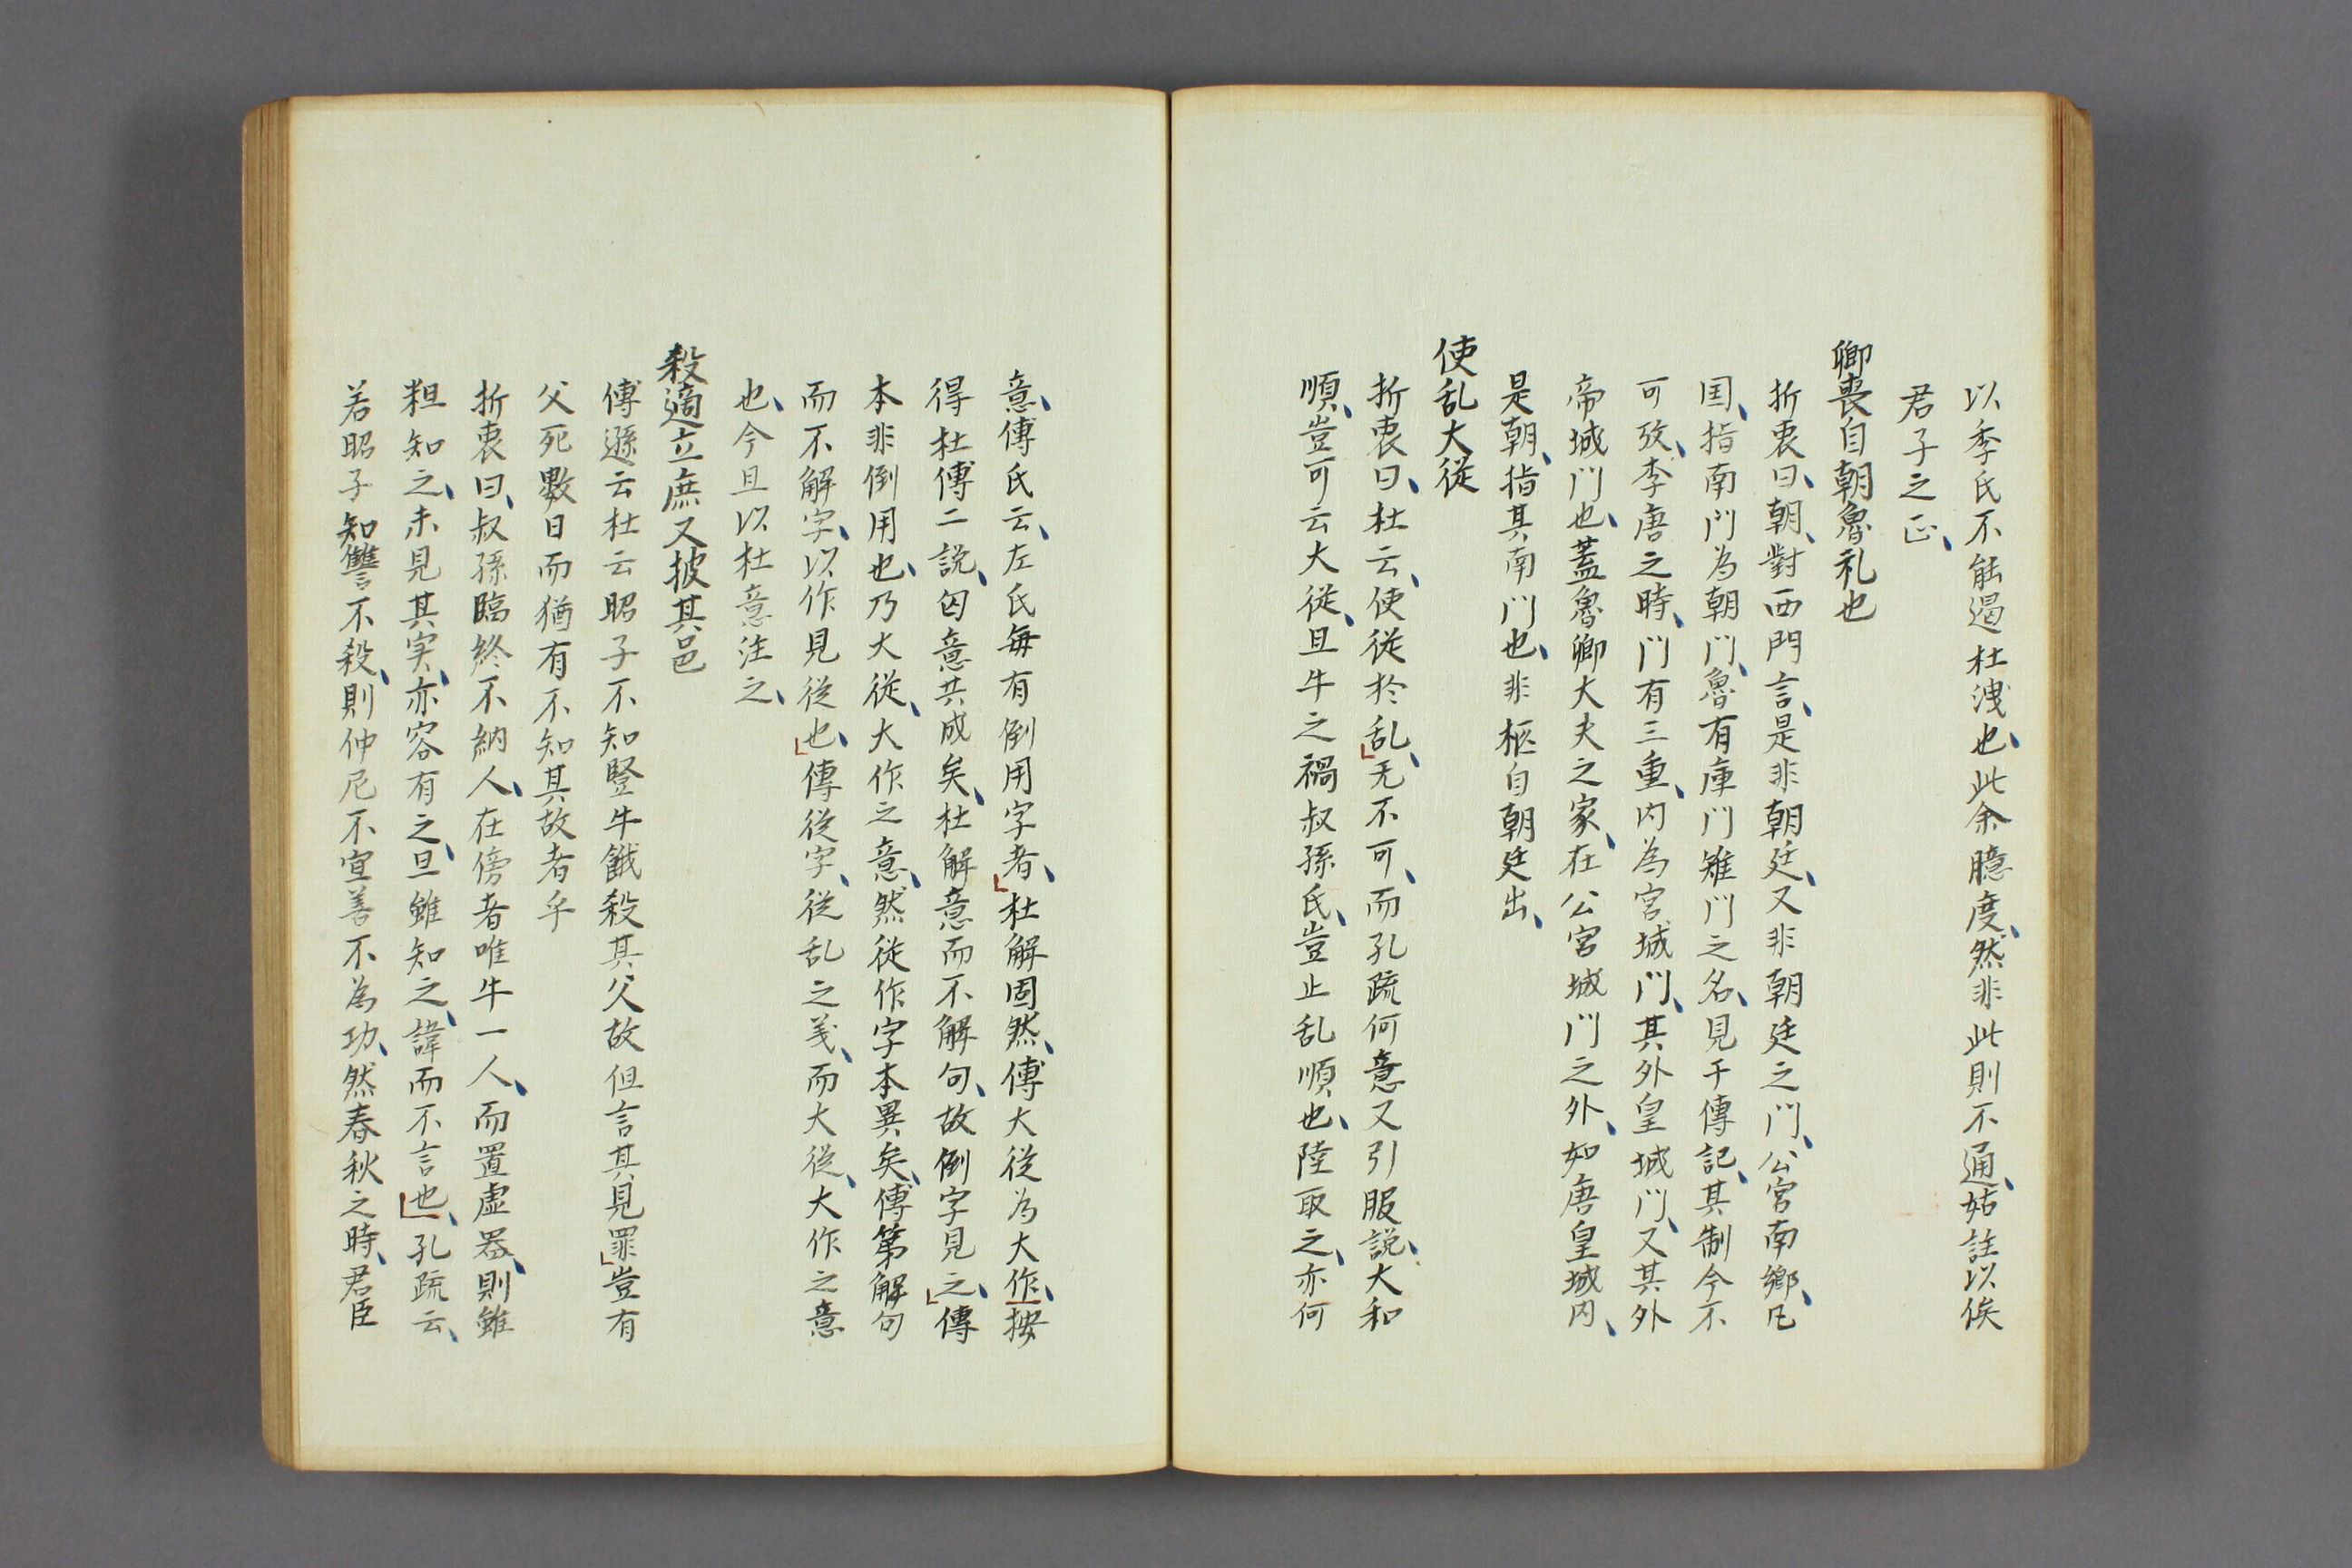 以季氏不能遏杜洩也、此余臆度、然非此則不通、姑註以俟
君子之正、
卿喪自朝魯礼也
折衷曰、朝、對西門言、是非朝廷、又非朝廷之門、公宮南郷、凡
国、指南門為朝門、魯有庫門雉門之名、見于傳記、其制今不
可攷、李唐之時、門有三重、内為宮城門、其外皇城門、又其外
帝城門也、蓋魯卿大夫之家、在公宮城門之外、如唐皇城内、
是朝、指其南門也、非柩自朝廷出、
使乱大從
折衷曰、杜云、使從於乱、无不可、而孔疏何意又引服説、大和
順、豈可云大從、且牛之禍叔孫氏、豈止乱順也、陸取之、亦何
意、傳氏云、左氏毎有倒用字者、杜解固然、傳大從為大作、按
得杜傳二説、囟意共成矣、杜解意而不解句、故倒字見之、傳
本非倒用也、乃大從、大作之意、然從作字本異矣、傳第解句
而不解字、以作見從也、傳從字、從乱之義、而大從、大作之意
也、今且以杜意注之、
殺適立庶又披其邑
傳遜云杜云昭子不知豎牛餓殺其父故但言其見罪豈有
父死數日而猶有不知其故者乎
折衷曰、叔孫臨終不納人、在傍者唯牛一人、而置虚器、則雖
粗知之、未見其実、亦容有之、旦雖知之、諱而不言也、孔疏云、
若昭子知讐不殺、則仲尼不宣善不為功、然春秋之時、君臣